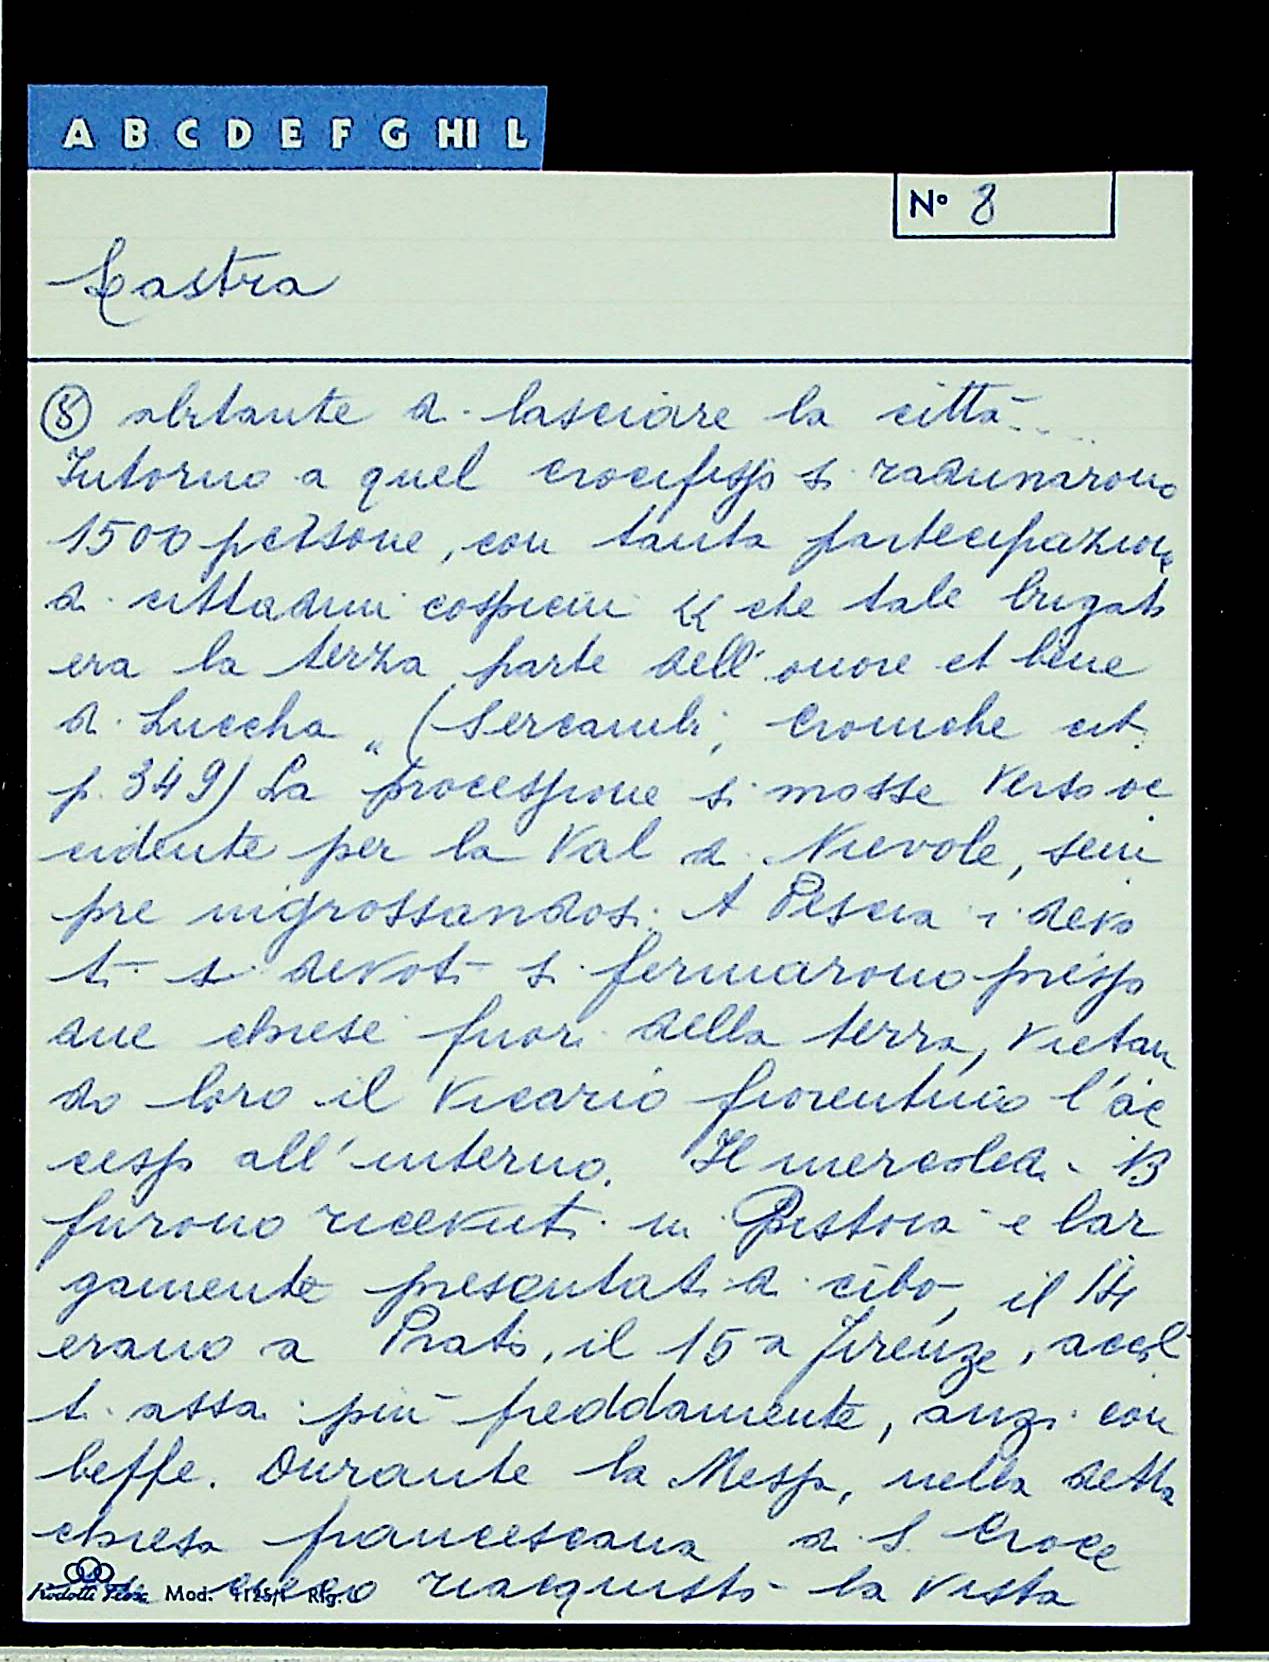 A B C D E F G HI L
N° 8
Lastra
⑧ abitante di lasciare la città...
Intorno a quel crocifisso si radunarono
1500 persone, con tanta partecipazione
di cittadini cospicui « che tale brigata
era la terza parte dell'onore et bene
di Luccha " (Sercambi, Croniche cit.
p. 349) La processione si mosse verso oc
cidente per la Val di Nievole, sem
pre ingrossandosi. A Pescia i devo
ti si devoti si fermarono presso
due chiese fuori della terra, vietan
do loro il Vicario fiorentino l'ac
cesso all'interno. Il mercoledì 13
furono ricevuti in Pistoia e lar
gamente presentati di cibo, il 14
erano a Prato, il 15 a Firenze, accol
ti assai più freddamente, anzi con
beffe. Durante la Messa, nella detta
chiesa francescana di S. Croce
cieco riacquistò la vista
Mod. 1125/1 Rig.